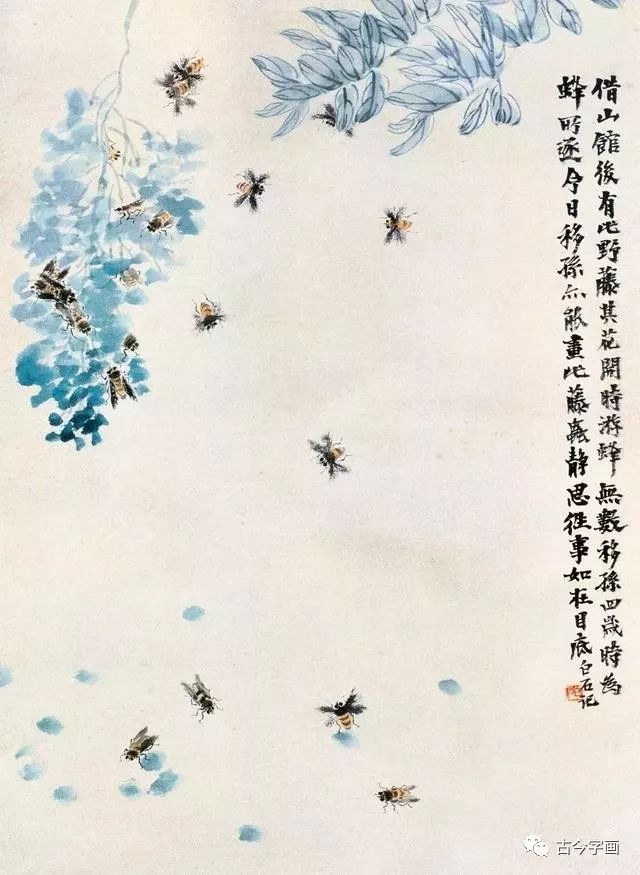 借山館後有此野藤其花開時游蜂無數移孫四歲時為
蜂所逐今日移孫亦能畫此藤蟲靜思往事如在目底
白石记
古今字画